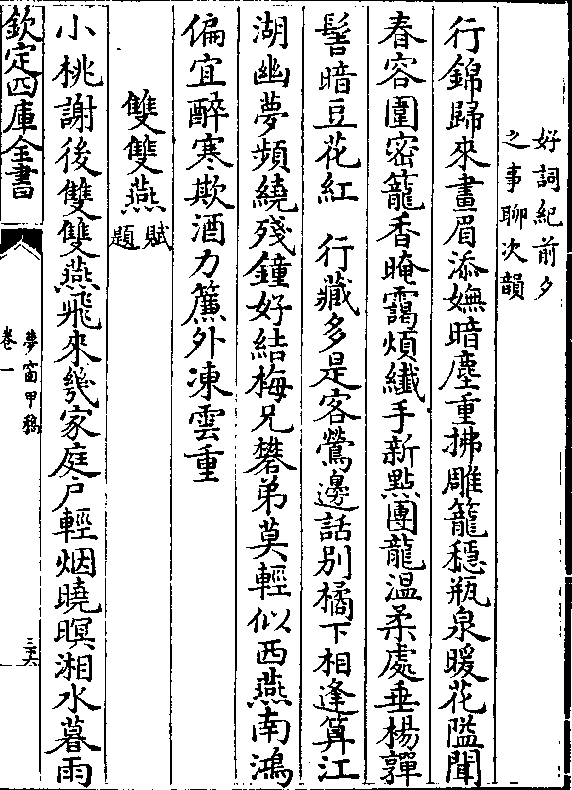 好詞紀前夕
之事聊次韻
行錦歸來畫眉添嫵暗塵重拂雕籠穩瓶泉暖花隘鬭
春容圍密籠香晻靄煩纖手新點團龍温柔處垂楊嚲
髻暗豆花紅　行藏多是客鶯邊話别橘下相逢算江
湖幽夢頻繞殘鐘好結梅兄礬弟莫輕似西燕南鴻
偏宜醉寒欺酒力簾外凍雲重
雙雙燕賦題
小桃謝後雙雙燕飛來幾家庭户輕烟曉暝湘水暮雨
欽定四庫全書
夢窗甲稿
卷一
三十六